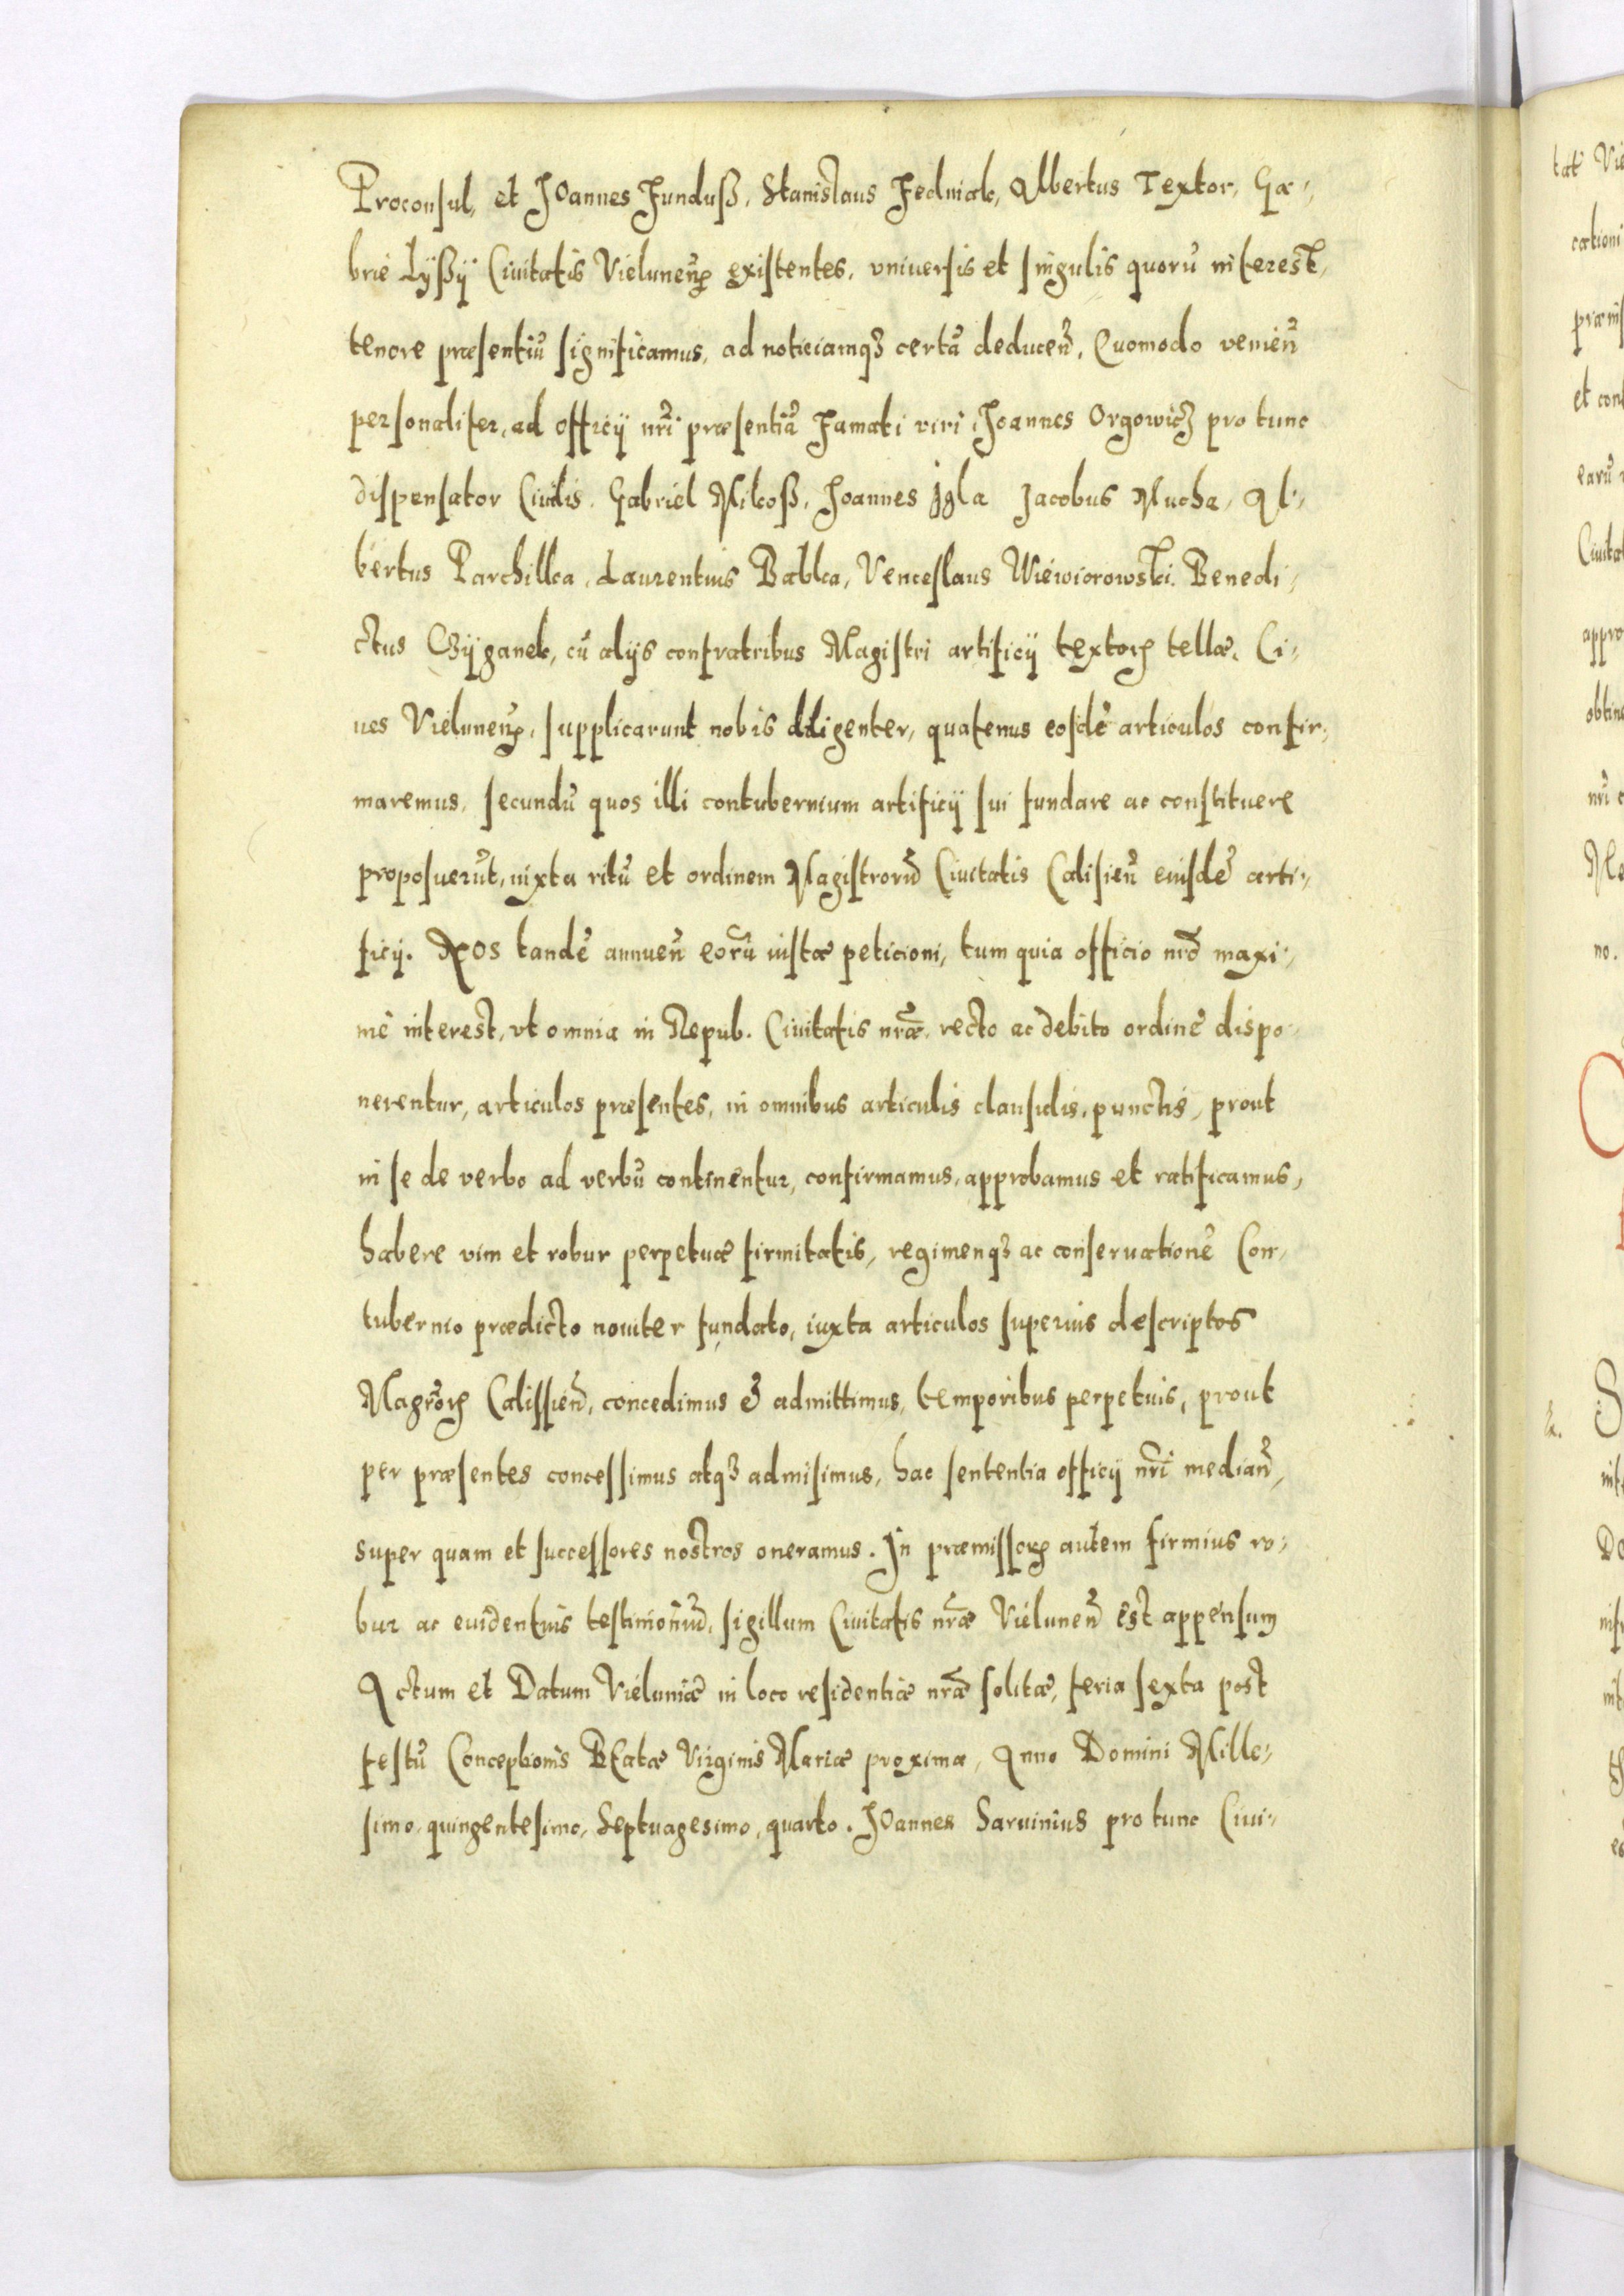 Proconsul, et JOannes Funduß, Stanislaus Fedniak, Albertus Textor, Ga-
brie Lyßÿ Ciuitatis Vielunen̄ existentes, vniuersis et singulis quorū interest,
tenore præsentiū significamus, ad noticiamqȝ certā deducen̄, Quomodo venien̄
personaliter, ad officÿ nr̄i præsentiā Famati viri Joannes Orgowicz pro tunc
dispensator Ciuilis, Gabriel Mikoß, Joannes Jgla Jacobus Mucha, Al-
bertus Parchilka, Laurentius Babka, Venceslaus Wiewiorowski, Benedi-
ctus Czÿganek, cū alÿs confratribus Magistri artificÿ textorꝝ tellæ, Ci-
ues Vielunen̄, supplicarunt nobis diligenter, quatenus eosdē articulos confir-
maremus, secundū quos illi contubernium artificÿ sui fundare ac constituere
proposuerūt, iuxta ritū et ordinem Magistrorū Ciuitatis Calisien̄ eiusdē arti-
ficÿ. NOS tandē annuen̄ eorū iustæ peticioni, tum quia officio nr̄o maxi-
mē interest, vt omnia in Repub. Ciuitatis nr̄æ, recto ac debito ordinē dispo-
nerentur, articulos præsentes, in omnibus articulis clausulis, punctis, prout
in se de verbo ad verbū continentur, confirmamus, approbamus et ratificamus,
habere vim et robur perpetuæ firmitatis, regimenqȝ ac conseruationē Con-
tubernio prædicto nouiter fundato, iuxta articulos superius descriptos
Magr̄orꝝ Calissien̄, concedimus & admittimus, temporibus perpetuis, prout
per præsentes concessimus atqȝ admisimus, hac sententia officÿ nr̄i median̄,
super quam et successores nostros oneramus. In præmissorꝝ autem firmius ro-
bur ac euidentius testimoniū, sigillum Ciuitatis nr̄æ Vielunen̄ est appensum
Actum et Datum Vieluniæ in loco residentiæ nr̄æ solitæ, feria sexta post
festū Conceptionis BEatæ Virginis Mariæ proxima, Anno Domini Mille-
simo, quingentesimo, Septuagesimo, quarto. JOannes Saruinius pro tunc Ciui-